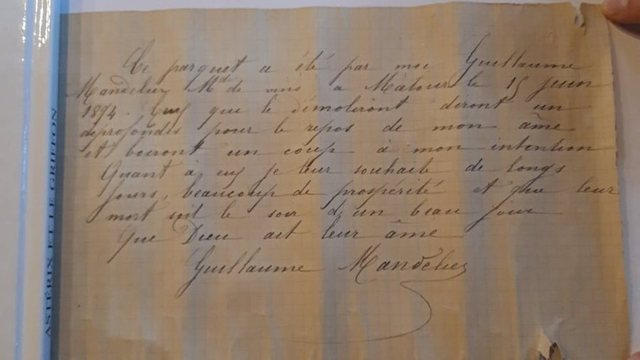 Ce parquet a été par moi Guillaume
Mandelier Md de vins a Matour le 15 Juin
1894. Ceux que le démoliront diront un
deprofondis pour le repos de mon âme
et boiront un coup à mon intention
Quant à eux je leur souhaite de longs
jours, beaucoup de prospérité et que leur
mort soit le soir d'un beau jour
Que Dieu ait leur âme
Guillaume Mandelier
ASTÉRIX ET LE GRIFFON